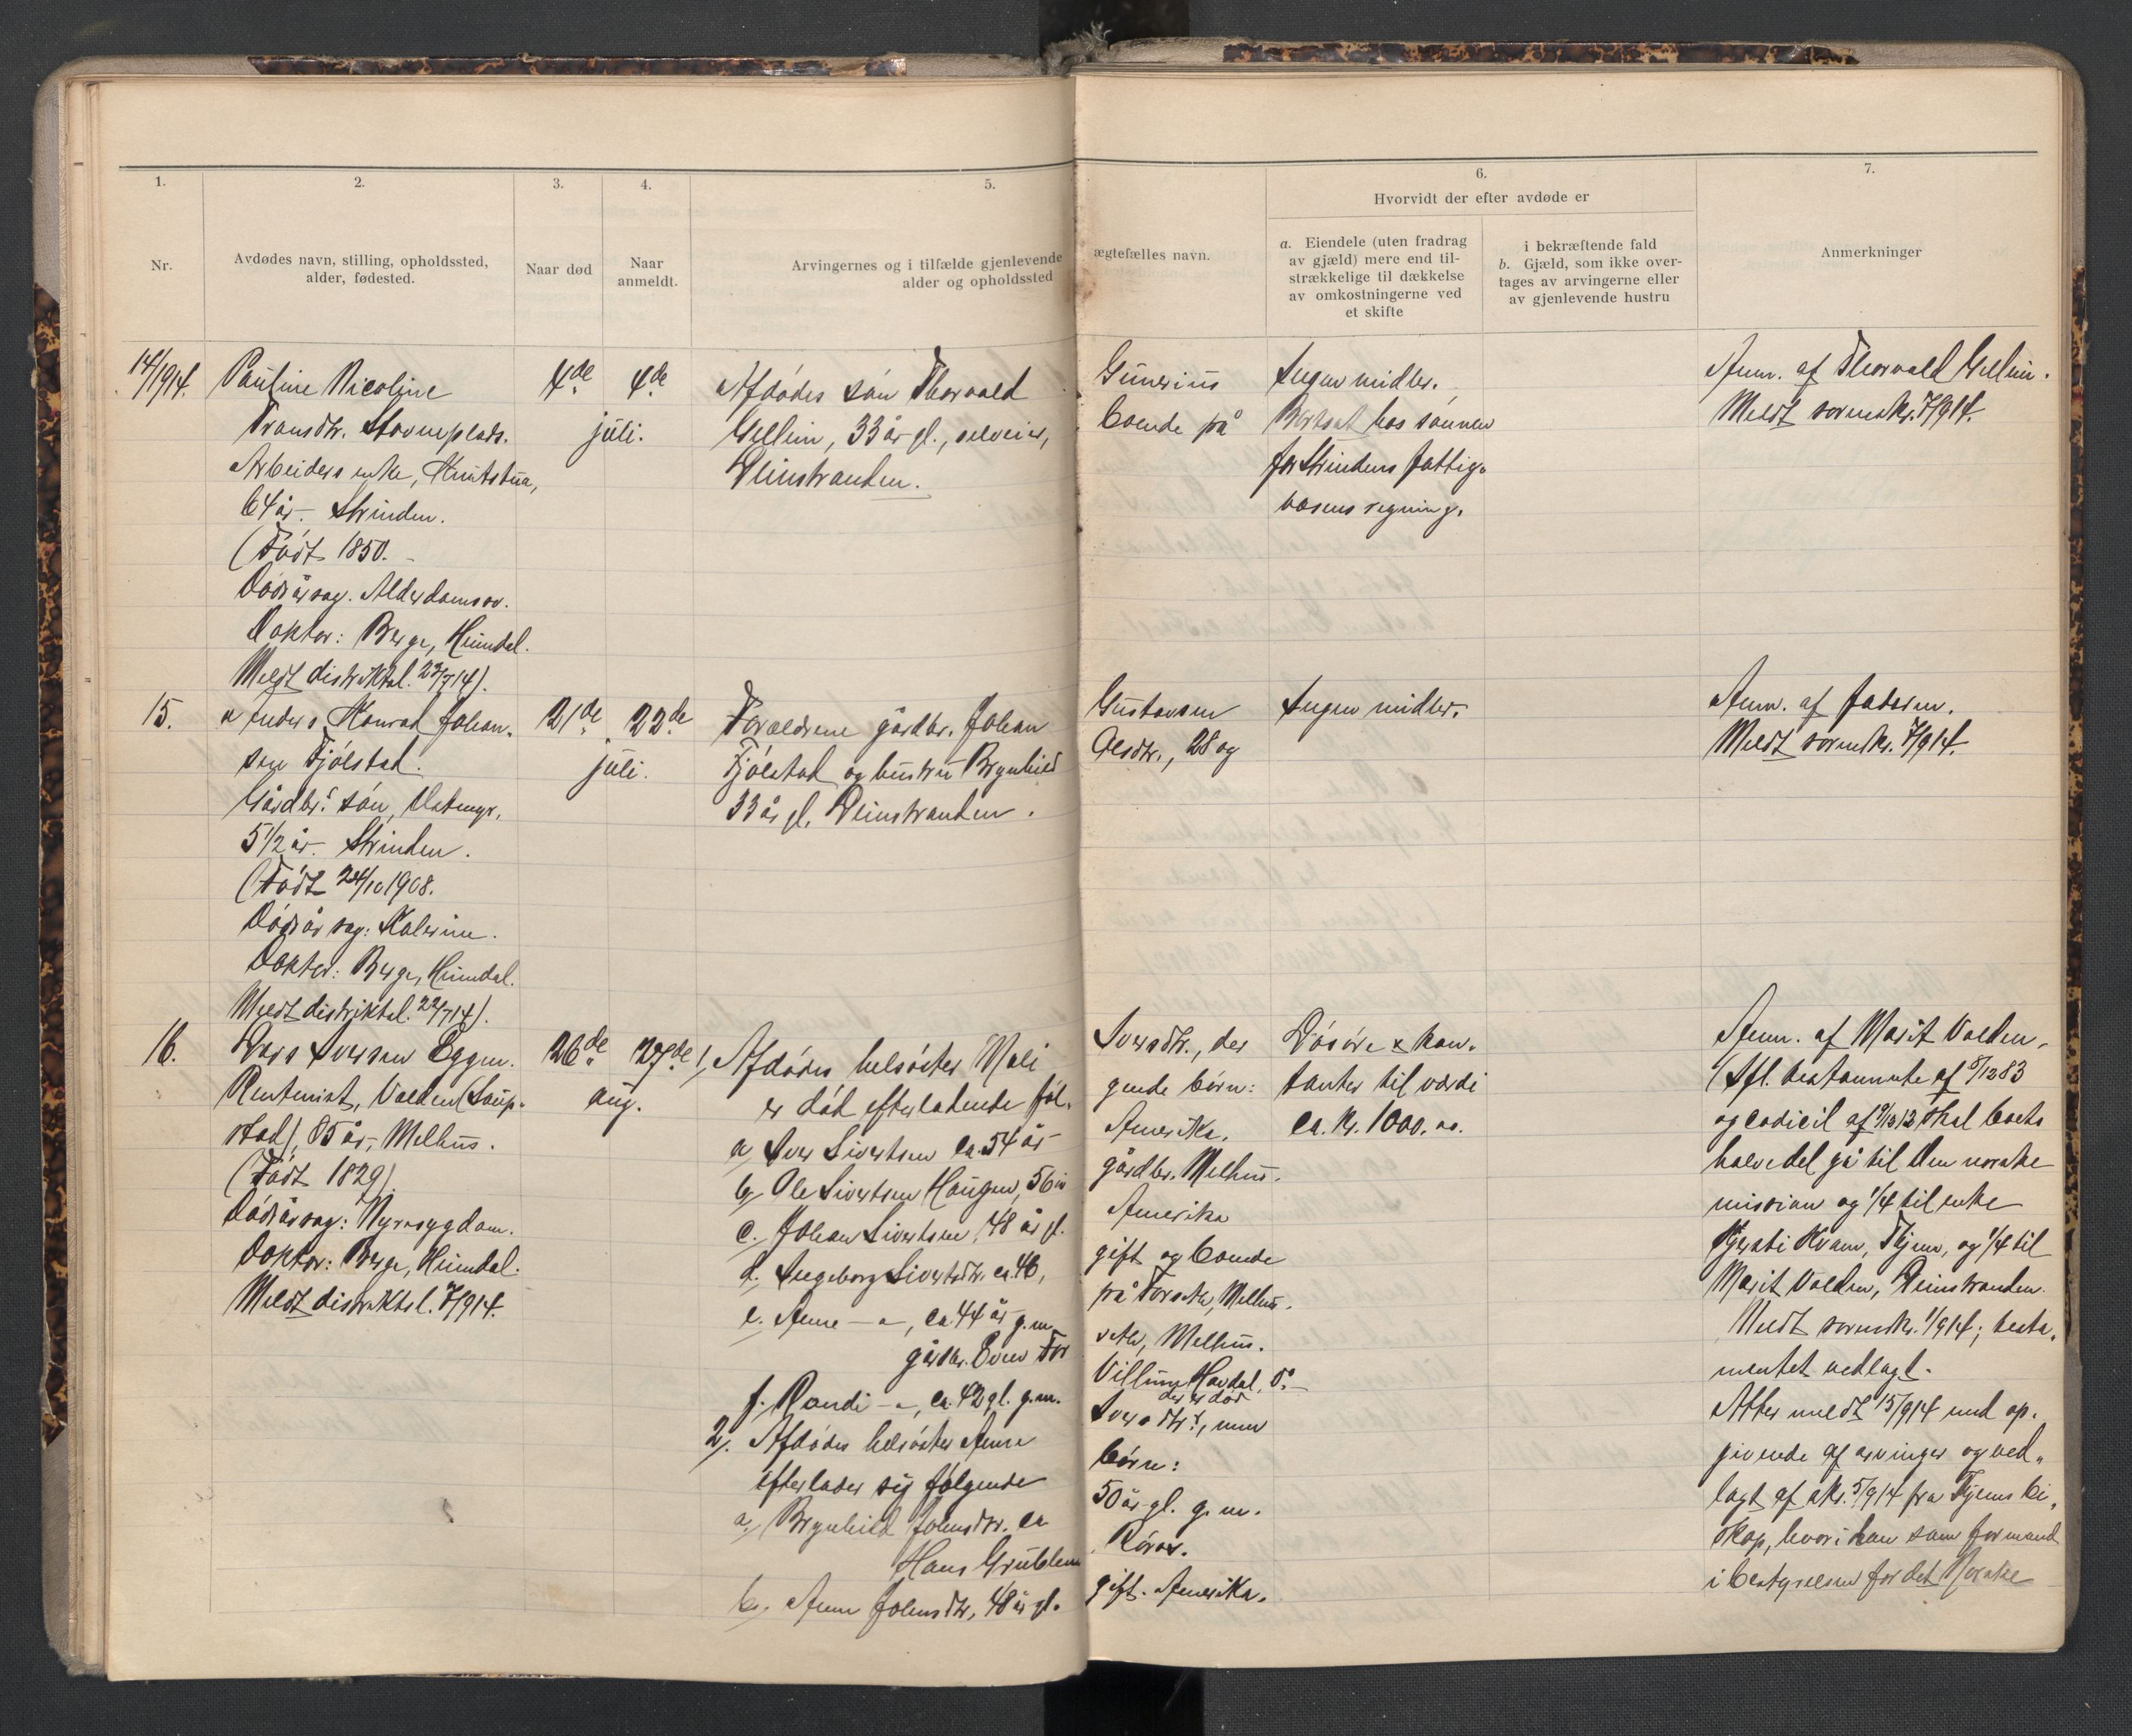 1.
2.
3.
4.
5.
6.
7.
Nr.
Avdødes navn, stilling, opholdssted,
alder, fødested.
Naar død
Naar
anmeldt.
Arvingernes og i tilfælde gjenlevende
alder og opholdssted
ægtefælles navn.
Hvorvidt der efter avdøde er
a. Eiendele (uten fradrag
av gjæld) mere end til-
strækkelige til dækkelse
av omkostningerne ved
et skifte
i bekræftende fald
b. Gjæld, som ikke over-
tages av arvingerne eller
av gjenlevende hustru
Anmerkninger
14/1914.
Pauline Nicoline
Transdtr. Stavneplads.
Arbeiders enke,
64 år. Strinden.
(Født 1850.
Dødsårsag. Alderdomssv.
Doktor: Berge, Heimdal.
Meldt distriktsl. 23/7 14).
4de 4de
juli.
Afdødes søn Thorvald
Gellein, 33 år gl., selveier,
Leinstranden.
Gunerius
boende på
Ingen midler.
Bortsat hos sønnen
for Strindens fattig-
væsens regning.
Anm. af Thorvald Gellein.
Meldt sorenskr. 7/9 14.
15.
Anders Konrad Johan-
sen Fjølstad.
Gårdbr.s søn,
5 1/2 år. Strinden.
(Født 24/10 1908.
Dødsårsag: Kolerine.
Doktor: Berge, Heimdal.
Meldt distriktsl. 22/7 14).
21de 22de
juli.
Forældrene gårdbr. Johan
Fjølstad og hustru Brynhild
33 år gl. Leinstranden.
Gustavsen
Olsdtr., 28 og
Ingen midler.
Anm. af faderen.
Meldt sorenskr. 7/9 14.
16.
Lars Iversen Eggen.
Rentenist, Valden (Saup-
stad), 85 år, Melhus.
(Født 1829)
Dødsårsag: Nyresygdom.
Doktor: Berge, Heimdal.
Meldt distriktsl. 7/9 14.
26de 27de
aug.
1, Afdødes helsøster Mali
er død efterladende føl-
a, Iver Sivertsen ca. 54 år
b, Ole Sivertsen Haugen, 56 år
c. Johan Sivertsen, 48 år gl.
d. Ingeborg Sivertsdtr. ca. 46,
e. Anne — " —, ca. 44 år g.m.
gårdbr. Even For
f. Randi — " —, ca. 42 gl. g.m.
2, Afdødes helsøster Anne
efterlader sig følgende
a, Brynhild Johnsdtr. ca
Hans
b. Anne Johnsdtr., 48 år gl.
Iversdtr., der
gende børn:
Amerika.
gårdbr. Melhus.
Amerika
gift og boende
på Forseth, Melhus.
seth, Melhus.
Villum Havdal, do. —
der er død
Iversdtr., men
børn:
50 år gl. g.m.
Røros.
gift. Amerika.
Løsøre & kon-
tanter til værdi
ca. kr. 1000.00.
Anm. af Marit Valden.
(Ifl. testamente af 6/12 83
og codicil af 9/12 12 skal boets
halvedel gå til Den norske
mission og 1/4 til enke
Kjersti Kvam, Thjem, og 1/4 til
Marit Valden, Leinstranden.
Meldt sorenskr. 1/9 14; testa-
mentet vedlagt.
Atter meldt 15/9 14 med op-
givende af arvinger og ved-
lagt af skr. 5/9 14 fra Thjems bi-
skop, hvori han som formand
i bestyrelsen for det Norske